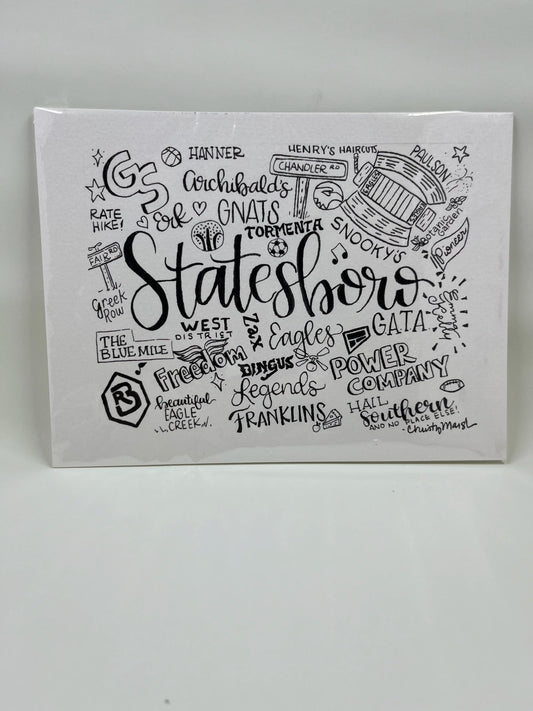 GS
HANNER
HENRY'S HAIRCUTS
PAULSON
Archibald's
CHANDLER RD
EAGLES
RATE
HIKE!
Esk
GNATS
TORMENTA
SNOOKY'S
Botanic
Garden
Pioneer
FAIR RD
Statesboro
Greek
ROW
WEST
DISTRICT
Zax
Eagles
G.A.T.A.
THE
BLUE MILE
Freedom
BINGUS
POWER
COMPANY
RB
Legends
beautiful
EAGLE
CREEK
FRANKLINS
HAIL
Southern
AND NO PLACE ELSE!
-Christy Marsh